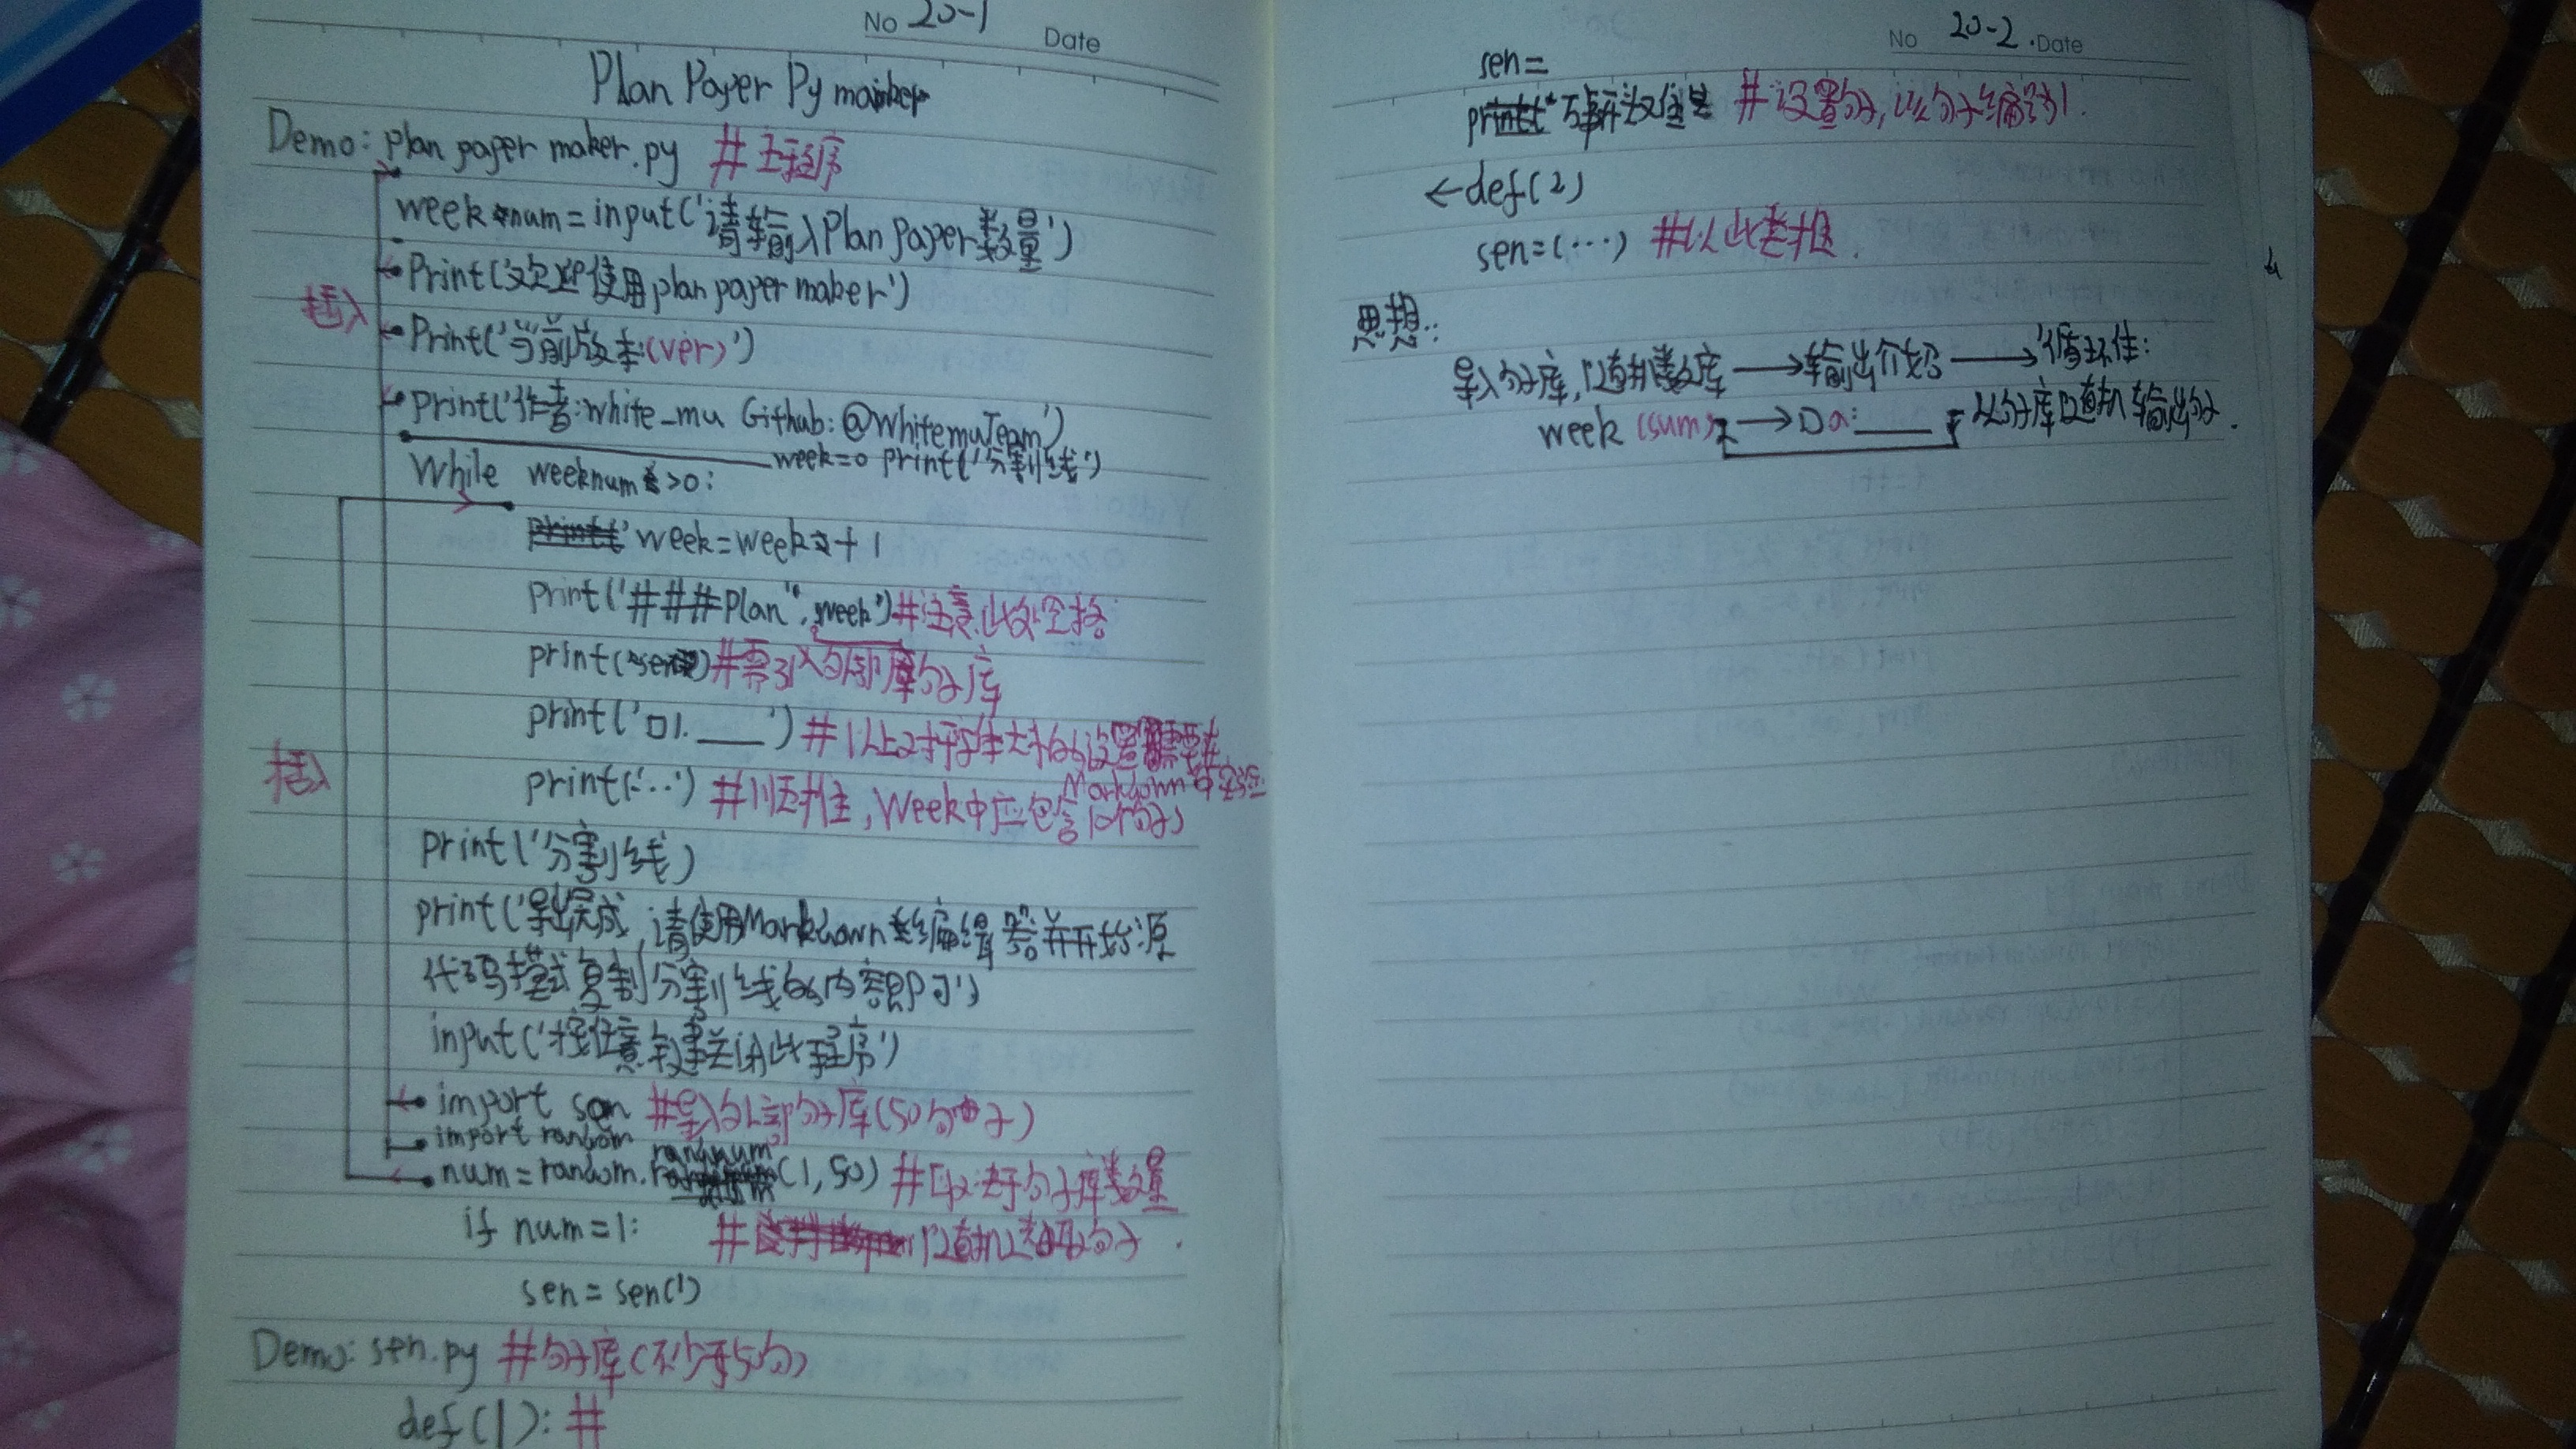 No 20-1 Date
Plan Paper Py maker
Demo: plan paper maker.py #主程序
weeknum=input('请输入Plan Paper数量')
插入
Print('欢迎使用plan paper maker')
Print('当前版本:(ver)')
print('作者:white_mu Github:@WhitemuTeam')
week=0 print('分割线')
While weeknum>0:
week=week+1
print('###Plan", week')#注意此处空格
print(sen)#需引入外部句子库
print('□1.___')#以上2排版格式的设置
Markdown中
print('...') #顺推,Week中应包含10个句子
插入
Print('分割线)
print('导出完成,请使用Markdown编辑器并开始源
代码模式复制分割线的内容即可')
input('按任意键关闭此程序')
import sen #导入外部句子库(50句子)
import random
randnum
num=random.(1,50) #取决于句子库数量
if num=1: #随机选取句子
sen=sen(1)
Demo: sen.py #句子库(不少于50句)
def(1):#
No 20-2 Date
sen=
#设置句子,该句子编号1.
←def(2)
sen=(...) #以此类推.
思想:
导入句子库,随机数库→输出介绍→循环体:
week(sum)→□a:___ 从句子库随机输出句子.